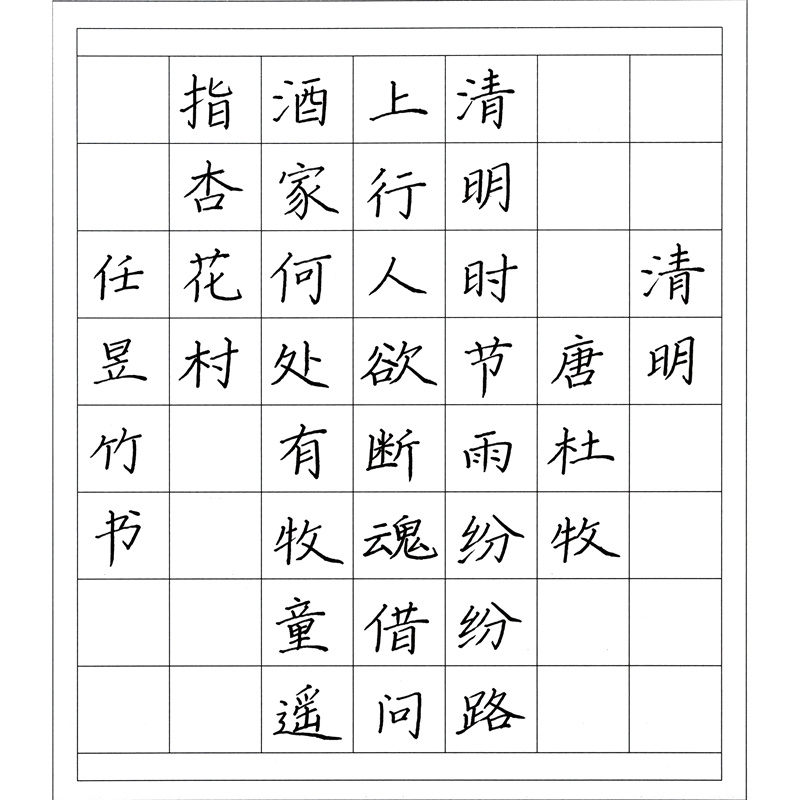 清明
唐杜牧
清明时节雨纷纷路
上行人欲断魂借问
酒家何处有牧童遥
指杏花村
任昱竹书